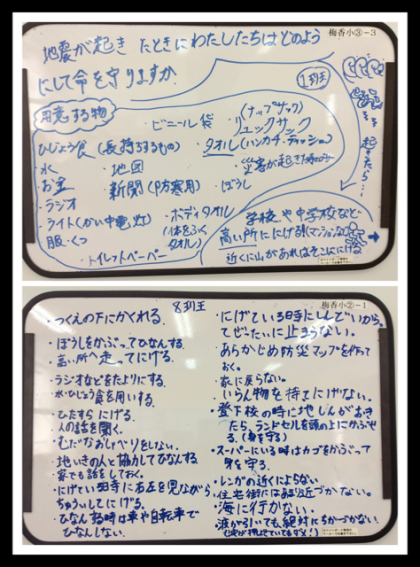 梅香小③-3
地震が起きたときにわたしたちはどのよう
にして命を守りますか
1班
用意する物
・ビニール袋
(ナップサック)
リュックサック
ひじょう食(長持するもの)
・タオル(ハンカチ・ティッシュ)
・水
・地図
・お金
・新聞(防寒用)
・ぼうし
・ラジオ
・ライト(かい中電灯)
・ボディタオル
(体をふくタオル)
・服・くつ
・トイレットペーパー
災害が起きた時
起きたら…
学校や中学校など
高い所ににげる!(マンションなど)
近くに山があればそこににげる
梅香小②-1
8班
・つくえの下にかくれる。
・ぼうしをかぶってひなんする。
・高い所へ走ってにげる。
・ラジオなどをたよりにする。
・水・ひじょう食を用いする。
・ひたすらにげる。
・人の話を聞く。
・むだなおしゃべりをしない。
・地いきの人と協力してひなんする。
・家でも話をしておく。
・にげている時に右左を見ながら
ちゅういしてにげる。
・ひなんする時は車や自転車で
ひなんしない。
・にげている時手にしんどいから、
てぜったいに止まらない。
・あらかじめ防災マップを作って
おく。
・家に戻らない。
・いらん物を持ってにげない。
・登下校の時に地しんがおき
たら、ランドセルを頭の上にかぶせ
る。(身を守る)
・スーパーにいる時はカゴをかぶって
身を守る。
・レンガの近くによらない。
・住宅街には近づかない。
・海に行かない。
・波が引いても絶対にちかづかない。